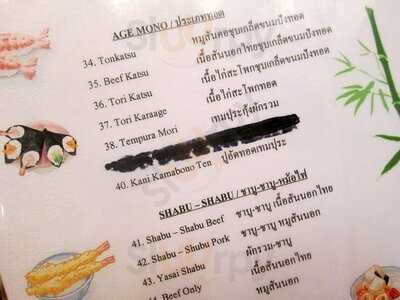 AGE MONO / ประเภททอด
34. Tonkatsu หมูสันคอชุบเกล็ดขนมปังทอด
35. Beef Katsu เนื้อสันนอกไทยชุบเกล็ดขนมปังทอด
36. Tori Katsu เนื้อไก่สะโพกชุบเกล็ดขนมปังทอด
37. Tori Karaage เนื้อไก่สะโพกทอด
38. Tempura Mori เทมปุระกุ้งผักรวม
40. Kani Kamabono Ten ปูอัดทอดเทมปุระ
SHABU – SHABU / ชาบู-ชาบู-หม้อไฟ
41. Shabu – Shabu Beef ชาบู-ชาบู เนื้อสันนอกไทย
42. Shabu – Shubu Pork ชาบู-ชาบู หมูสันนอก
43. Yasai Shabu ผักรวม-ชาบู
44 Beef Only เนื้อสันนอกไทย
หมูสันนอก